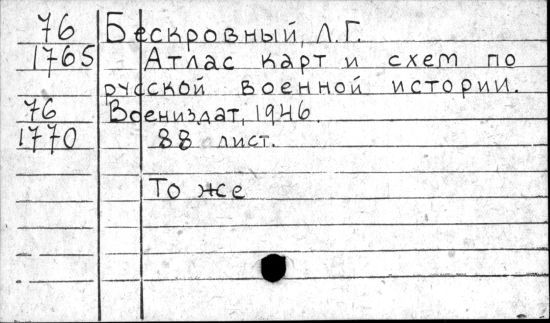 76 Бескровный, Л.Г.
1765 Атлас карт и схем по
русской военной истории.
76 Воениздат, 1946.
1770 88 лист.
То же